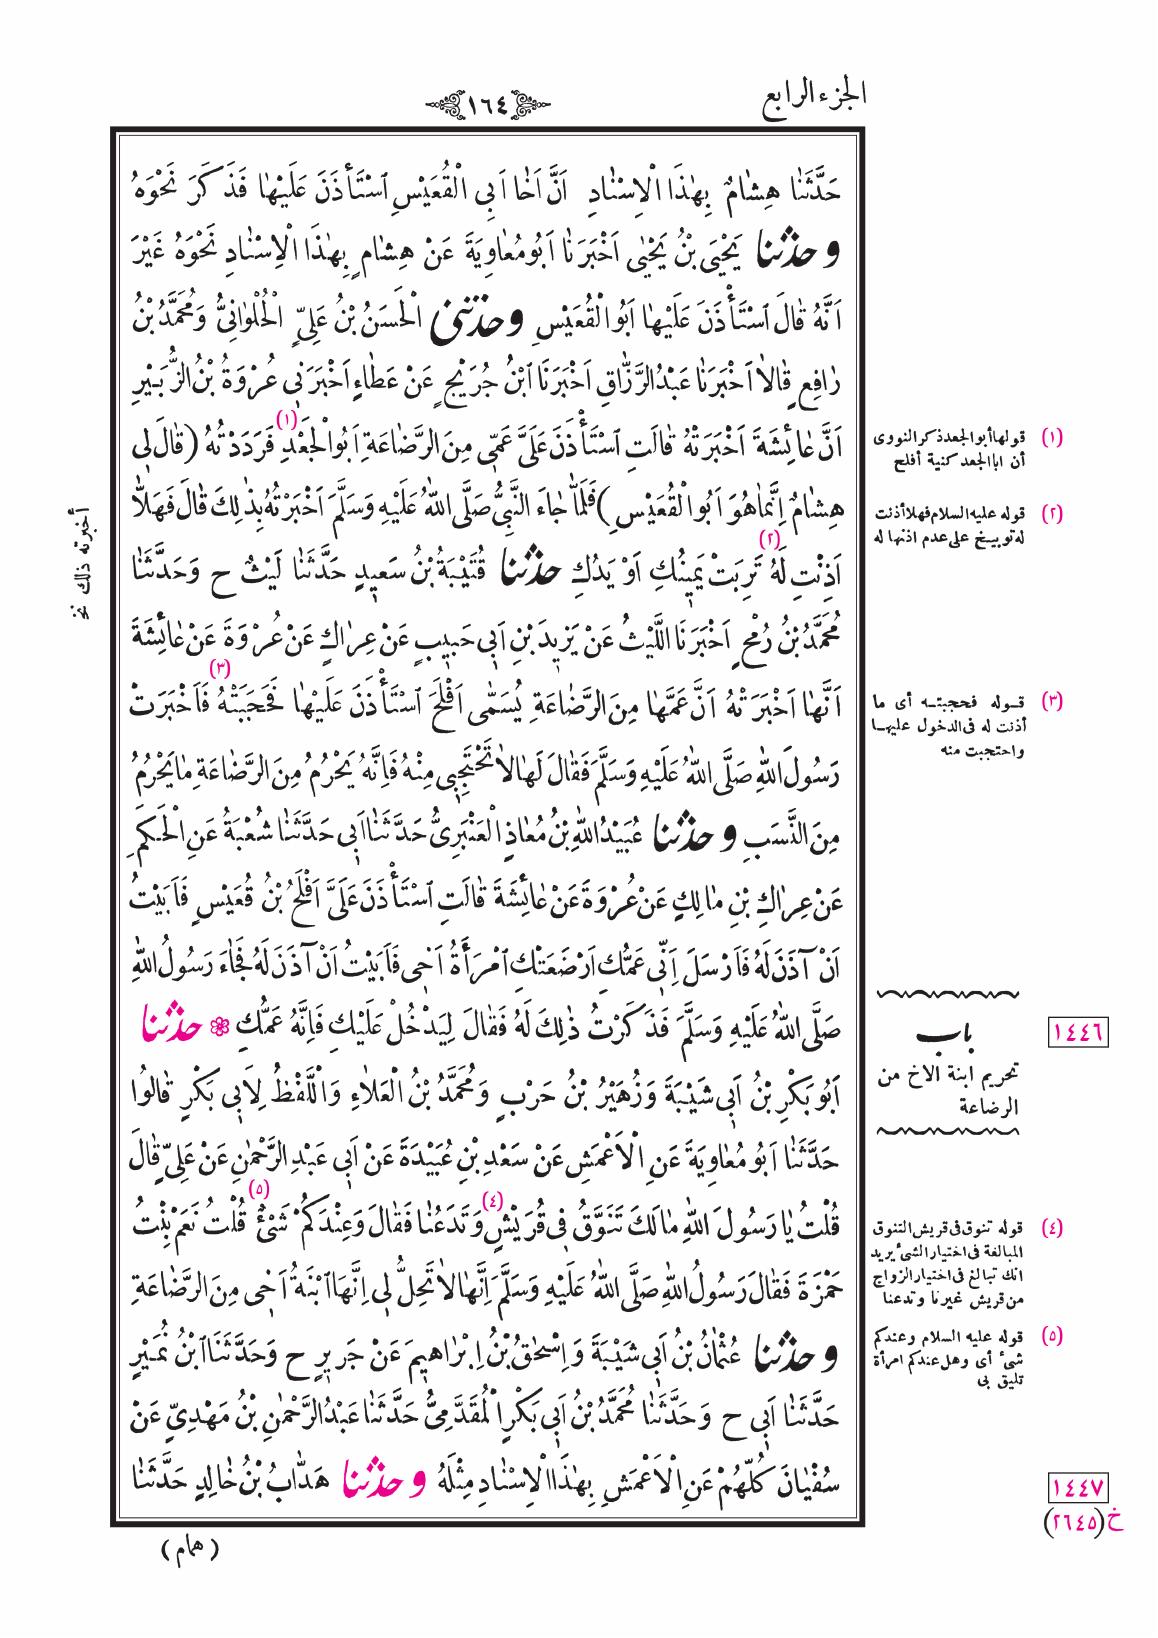 الجزء الرابع
١٦٤
حَدَّثَنَا هِشَامٌ بِهٰذَا الْاِسْنَادِ اَنَّ اَخَا اَبِى الْقُعَيْسِ اسْتَأْذَنَ عَلَيْهَا فَذَكَرَ نَحْوَهُ
و حدثنا يَحْيَى بْنُ يَحْيٰى اَخْبَرَنَا اَبُو مُعَاوِيَةَ عَنْ هِشَامٍ بِهٰذَا الْاِسْنَادِ نَحْوَهُ غَيْرَ
اَنَّهُ قَالَ اسْتَأْذَنَ عَلَيْهَا اَبُو الْقُعَيْسِ وحدثنى الْحَسَنُ بْنُ عَلِىٍّ الْحُلْوَانِىُّ وَمُحَمَّدُ بْنُ
رَافِعٍ قَالَا اَخْبَرَنَا عَبْدُ الرَّزَّاقِ اَخْبَرَنَا ابْنُ جُرَيْجٍ عَنْ عَطَاءٍ اَخْبَرَنِى عُرْوَةُ بْنُ الزُّبَيْرِ
اَنَّ عَائِشَةَ اَخْبَرَتْهُ قَالَتِ اسْتَأْذَنَ عَلَىَّ عَمِّى مِنَ الرَّضَاعَةِ اَبُو الْجَعْدِ (١) فَرَدَدْتُهُ (قَالَ لِى
هِشَامٌ اِنَّمَا هُوَ اَبُو الْقُعَيْسِ) فَلَمَّا جَاءَ النَّبِىُّ صَلَّى اللهُ عَلَيْهِ وَسَلَّمَ اَخْبَرْتُهُ بِذٰلِكَ قَالَ فَهَلَّا
اَذِنْتِ لَهُ (٢) تَرِبَتْ يَمِينُكِ اَوْ يَدُكِ حدثنا قُتَيْبَةُ بْنُ سَعِيدٍ حَدَّثَنَا لَيْثٌ ح وَحَدَّثَنَا
مُحَمَّدُ بْنُ رُمْحٍ اَخْبَرَنَا اللَّيْثُ عَنْ يَزِيدَ بْنِ اَبِى حَبِيبٍ عَنْ عِرَاكٍ عَنْ عُرْوَةَ عَنْ عَائِشَةَ
اَنَّهَا اَخْبَرَتْهُ اَنَّ عَمَّهَا مِنَ الرَّضَاعَةِ يُسَمّٰى اَفْلَحَ اسْتَأْذَنَ عَلَيْهَا فَحَجَبَتْهُ (٣) فَاَخْبَرَتْ
رَسُولَ اللهِ صَلَّى اللهُ عَلَيْهِ وَسَلَّمَ فَقَالَ لَهَا لَا تَحْتَجِبِى مِنْهُ فَاِنَّهُ يَحْرُمُ مِنَ الرَّضَاعَةِ مَا يَحْرُمُ
مِنَ النَّسَبِ و حدثنا عُبَيْدُ اللهِ بْنُ مُعَاذٍ الْعَنْبَرِىُّ حَدَّثَنَا اَبِى حَدَّثَنَا شُعْبَةُ عَنِ الْحَكَمِ
عَنْ عِرَاكِ بْنِ مَالِكٍ عَنْ عُرْوَةَ عَنْ عَائِشَةَ قَالَتِ اسْتَأْذَنَ عَلَىَّ اَفْلَحُ بْنُ قُعَيْسٍ فَاَبَيْتُ
اَنْ آذَنَ لَهُ فَاَرْسَلَ اِنِّى عَمُّكِ اَرْضَعَتْكِ امْرَأَةُ اَخِى فَاَبَيْتُ اَنْ آذَنَ لَهُ فَجَاءَ رَسُولُ اللهِ
صَلَّى اللهُ عَلَيْهِ وَسَلَّمَ فَذَكَرْتُ ذٰلِكَ لَهُ فَقَالَ لِيَدْخُلْ عَلَيْكِ فَاِنَّهُ عَمُّكِ ۞ حدثنا
اَبُو بَكْرِ بْنُ اَبِى شَيْبَةَ وَزُهَيْرُ بْنُ حَرْبٍ وَمُحَمَّدُ بْنُ الْعَلَاءِ وَاللَّفْظُ لِاَبِى بَكْرٍ قَالُوا
حَدَّثَنَا اَبُو مُعَاوِيَةَ عَنِ الْاَعْمَشِ عَنْ سَعْدِ بْنِ عُبَيْدَةَ عَنْ اَبِى عَبْدِ الرَّحْمٰنِ عَنْ عَلِىٍّ قَالَ
قُلْتُ يَا رَسُولَ اللهِ مَا لَكَ تَنَوَّقُ فِى قُرَيْشٍ (٤) وَتَدَعُنَا فَقَالَ وَعِنْدَكُمْ شَىْءٌ (٥) قُلْتُ نَعَمْ بِنْتُ
حَمْزَةَ فَقَالَ رَسُولُ اللهِ صَلَّى اللهُ عَلَيْهِ وَسَلَّمَ اِنَّهَا لَا تَحِلُّ لِى اِنَّهَا ابْنَةُ اَخِى مِنَ الرَّضَاعَةِ
و حدثنا عُثْمَانُ بْنُ اَبِى شَيْبَةَ وَاِسْحٰقُ بْنُ اِبْرَاهِيمَ عَنْ جَرِيرٍ ح وَحَدَّثَنَا ابْنُ نُمَيْرٍ
حَدَّثَنَا اَبِى ح وَحَدَّثَنَا مُحَمَّدُ بْنُ اَبِى بَكْرٍ الْمُقَدَّمِىُّ حَدَّثَنَا عَبْدُ الرَّحْمٰنِ بْنُ مَهْدِىٍّ عَنْ
سُفْيَانَ كُلُّهُمْ عَنِ الْاَعْمَشِ بِهٰذَا الْاِسْنَادِ مِثْلَهُ و حدثنا هَدَّابُ بْنُ خَالِدٍ حَدَّثَنَا
(همام)
(١) قولها أبو الجعد ذكر النووى
أن ابا الجعد كنية أفلح
(٢) قوله عليه السلام فهلا أذنت
له توبيخ على عدم اذنها له
(٣) قوله فحجبته أى ما
أذنت له فى الدخول عليها
واحتجبت منه
١٤٤٦
باب
تحريم ابنة الاخ من
الرضاعة
(٤) قوله تنوق فى قريش التنوق
المبالغة فى اختيار الشئ يريد
انك تبالغ فى اختيار الزواج
من قريش غيرنا وتدعنا
(٥) قوله عليه السلام وعندكم
شئ أى وهل عندكم امرأة
تليق بى
١٤٤٧
خ (٢٦٤٥)
أخبرته ذلك نخ